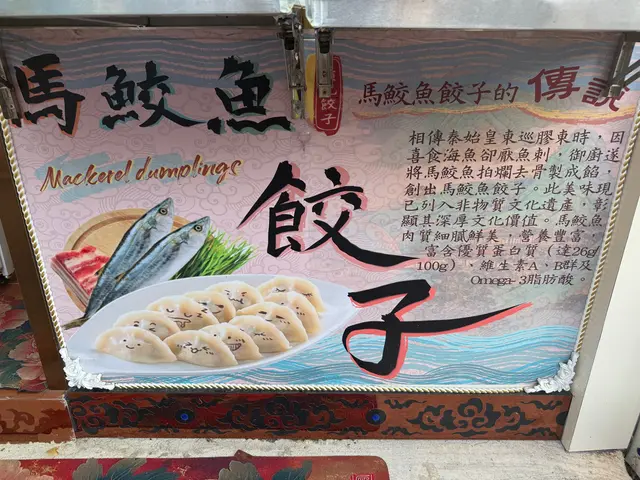 馬鮫魚
餃子
Mackerel dumplings
餃子
馬鮫魚餃子的傳説
相傳秦始皇東巡膠東時，因
喜食海魚卻厭魚刺，御廚遂
將馬鮫魚拍爛去骨製成餡，
創出馬鮫魚餃子。此美味現
已列入非物質文化遺產，彰
顯其深厚文化價值。馬鮫魚
肉質細膩鮮美，營養豐富，
富含優質蛋白質（達26g/
100g）、維生素A、B群及
Omega-3脂肪酸。